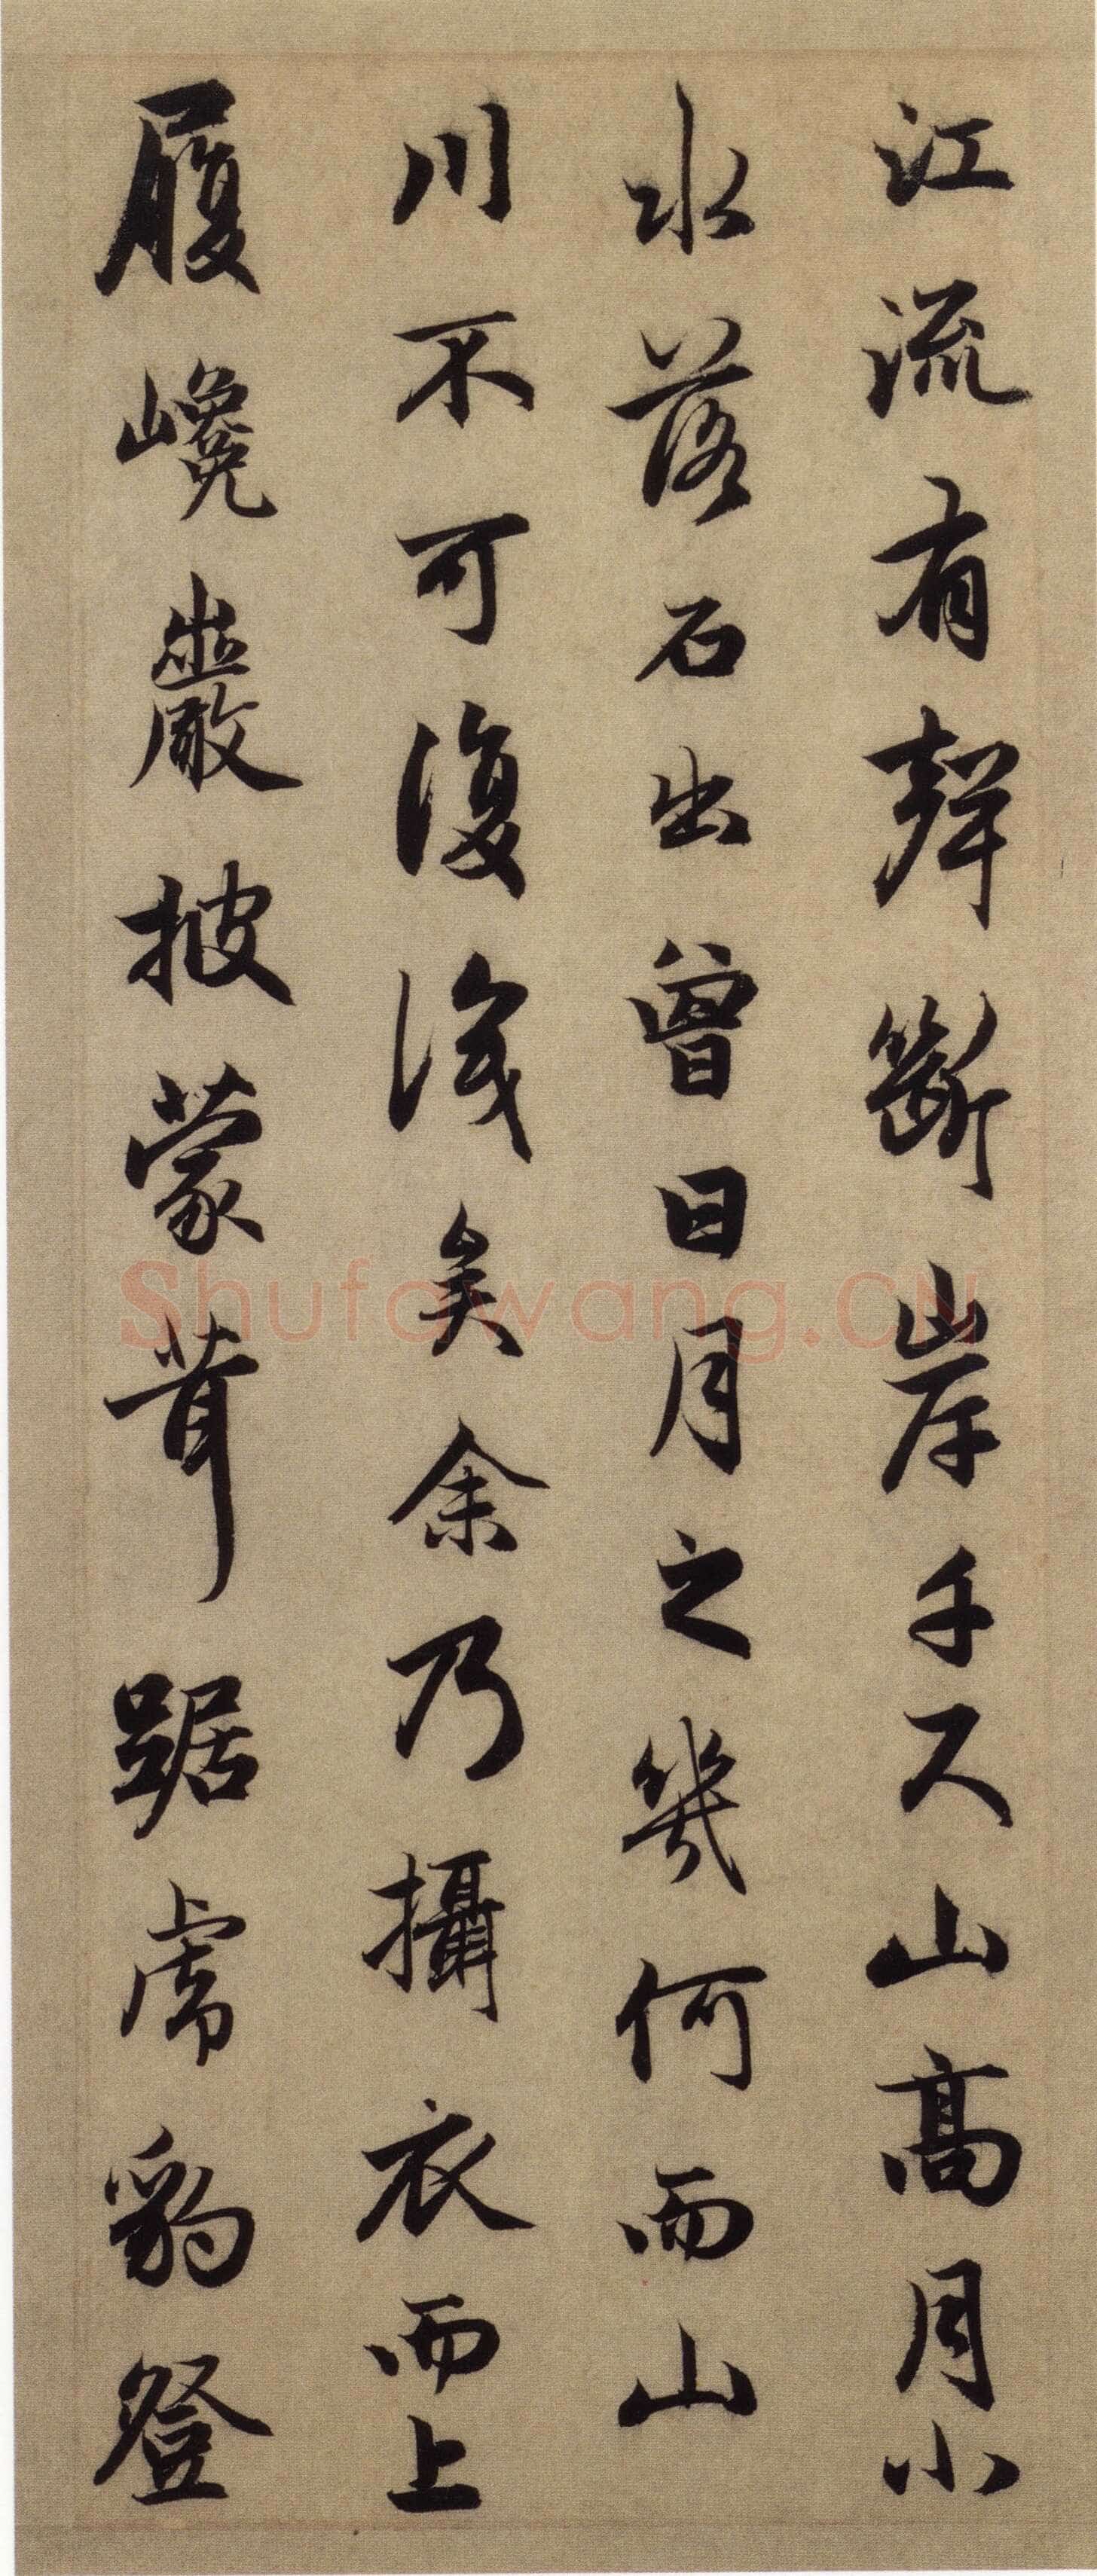 江流有聲斷岸千尺山高月小
水落石出曾日月之幾何而山
川不可復識矣余乃攝衣而上
履巉巖披蒙茸踞虎豹登
Shufawang.CN